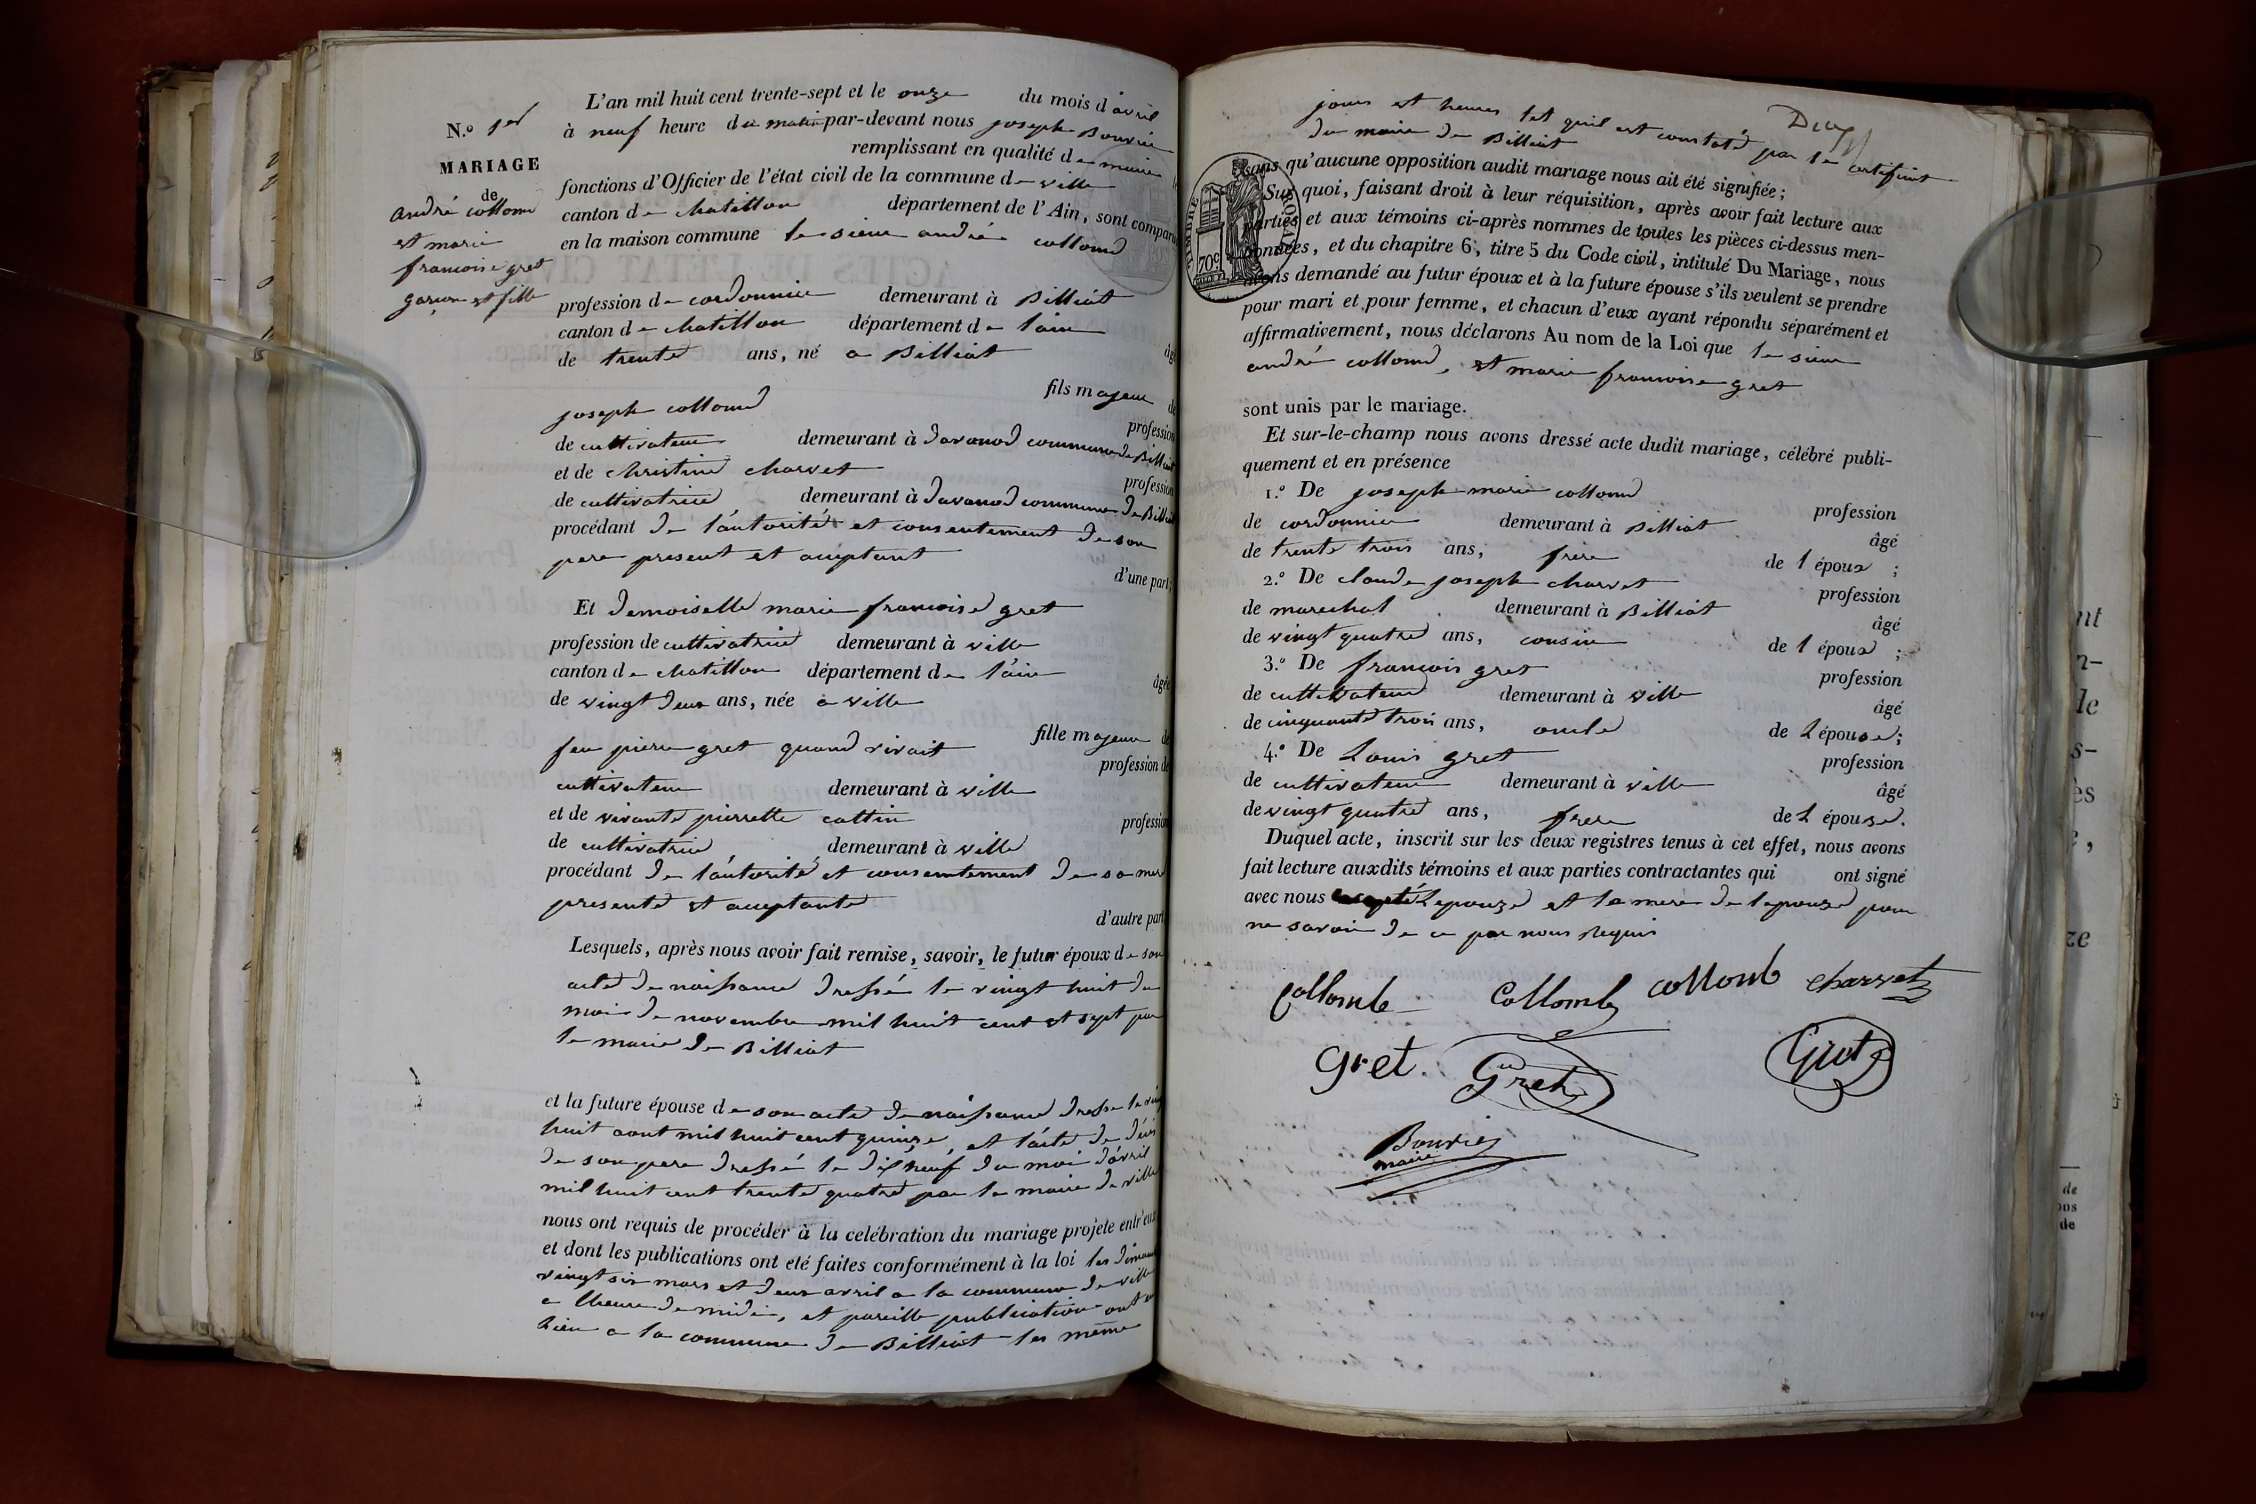 N.º 1er
MARIAGE
de
andré collomb
et marie
francoise gret
garçon et fille
L'an mil huit cent trente-sept et le onze du mois d'avril
à neuf heure du matin par-devant nous joseph Bouvier
remplissant en qualité de maire
fonctions d'Officier de l'état civil de la commune de ville
canton de chatillon département de l'Ain, sont comparu
en la maison commune le sieur andré collomb
profession de cordonnier demeurant à Billiat
canton de chatillon département de l'ain
âgé
de trente ans, né a Billiat
fils majeur de
joseph collomb
profession
de cultivateur demeurant à davanod commune de Billiat
et de christine charvet
profession
de cultivatrice demeurant à davanod commune de Billiat
procédant de l'autorité et consentement de son
pere present et acceptant
d'une part;
Et demoiselle marie francoise gret
profession de cultivatrice demeurant à ville
canton de chatillon département de l'ain
âgée
de vingt deux ans, née a ville
fille majeure de
feu pierre gret quand vivait
profession de
cultivateur demeurant à ville
et de vivante pierrette cattin
profession
de cultivatrice demeurant à ville
procédant de l'autorité et consentement de sa mere
presente et acceptante
d'autre part
Lesquels, après nous avoir fait remise, savoir, le futur époux de son
acte de naissance dressé le vingt huit du
mois de novembre mil huit cent et sept par
le maire de Billiat
et la future épouse de son acte de naissance dresse le vingt
huit aout mil huit cent quinze, et l'acte de décès
de son pere dressé le dix neuf du moi d'avril
mil huit cent trente quatre par le maire de ville
nous ont requis de procéder à la celébration du mariage projete entr'eux
et dont les publications ont eté faites conformément à la loi les dimanc
vingt six mars et deux avril a la commune de ville
a lheure de midi, et pareille publication ont eu
lieu a la commune de Billiat les même
jours et heures tel quil est constaté par le certificat
du maire de Billiat
sans qu'aucune opposition audit mariage nous ait été signifiée;
Sur quoi, faisant droit à leur réquisition, après avoir fait lecture aux
parties et aux témoins ci-après nommes de toutes les pièces ci-dessus men-
tionnées, et du chapitre 6, titre 5 du Code civil, intitulé Du Mariage, nous
avons demandé au futur époux et à la future épouse s'ils veulent se prendre
pour mari et pour femme, et chacun d'eux ayant répondu séparément et
affirmativement, nous déclarons Au nom de la Loi que le sieur
andré collomb, et marie francoise gret
TIMBRE ROYAL
70c
sont unis par le mariage.
Et sur-le-champ nous avons dressé acte dudit mariage, célébré publi-
quement et en présence
1.º De joseph marie collomb
profession
de cordonnier demeurant à Billiat
âgé
de trente trois ans, frere de l époux ;
2.º De claude joseph charvet
profession
de marechal demeurant à Billiat
âgé
de vingt quatre ans, cousin de l époux ;
3.º De francois gret
profession
de cultivateur demeurant à ville
âgé
de cinquante trois ans, oncle de l épouse;
4.º De Louis gret
profession
de cultivateur demeurant à ville
âgé
de vingt quatre ans, frere de l épouse.
Duquel acte, inscrit sur les deux registres tenus à cet effet, nous avons
fait lecture auxdits témoins et aux parties contractantes qui ont signé
avec nous excepté Lepouze et la mere de lepouze pour
ne savoir de ce par nous Requis
Collomb Collomb collomb charvet
gret Gret Gret
Bouvier
maire